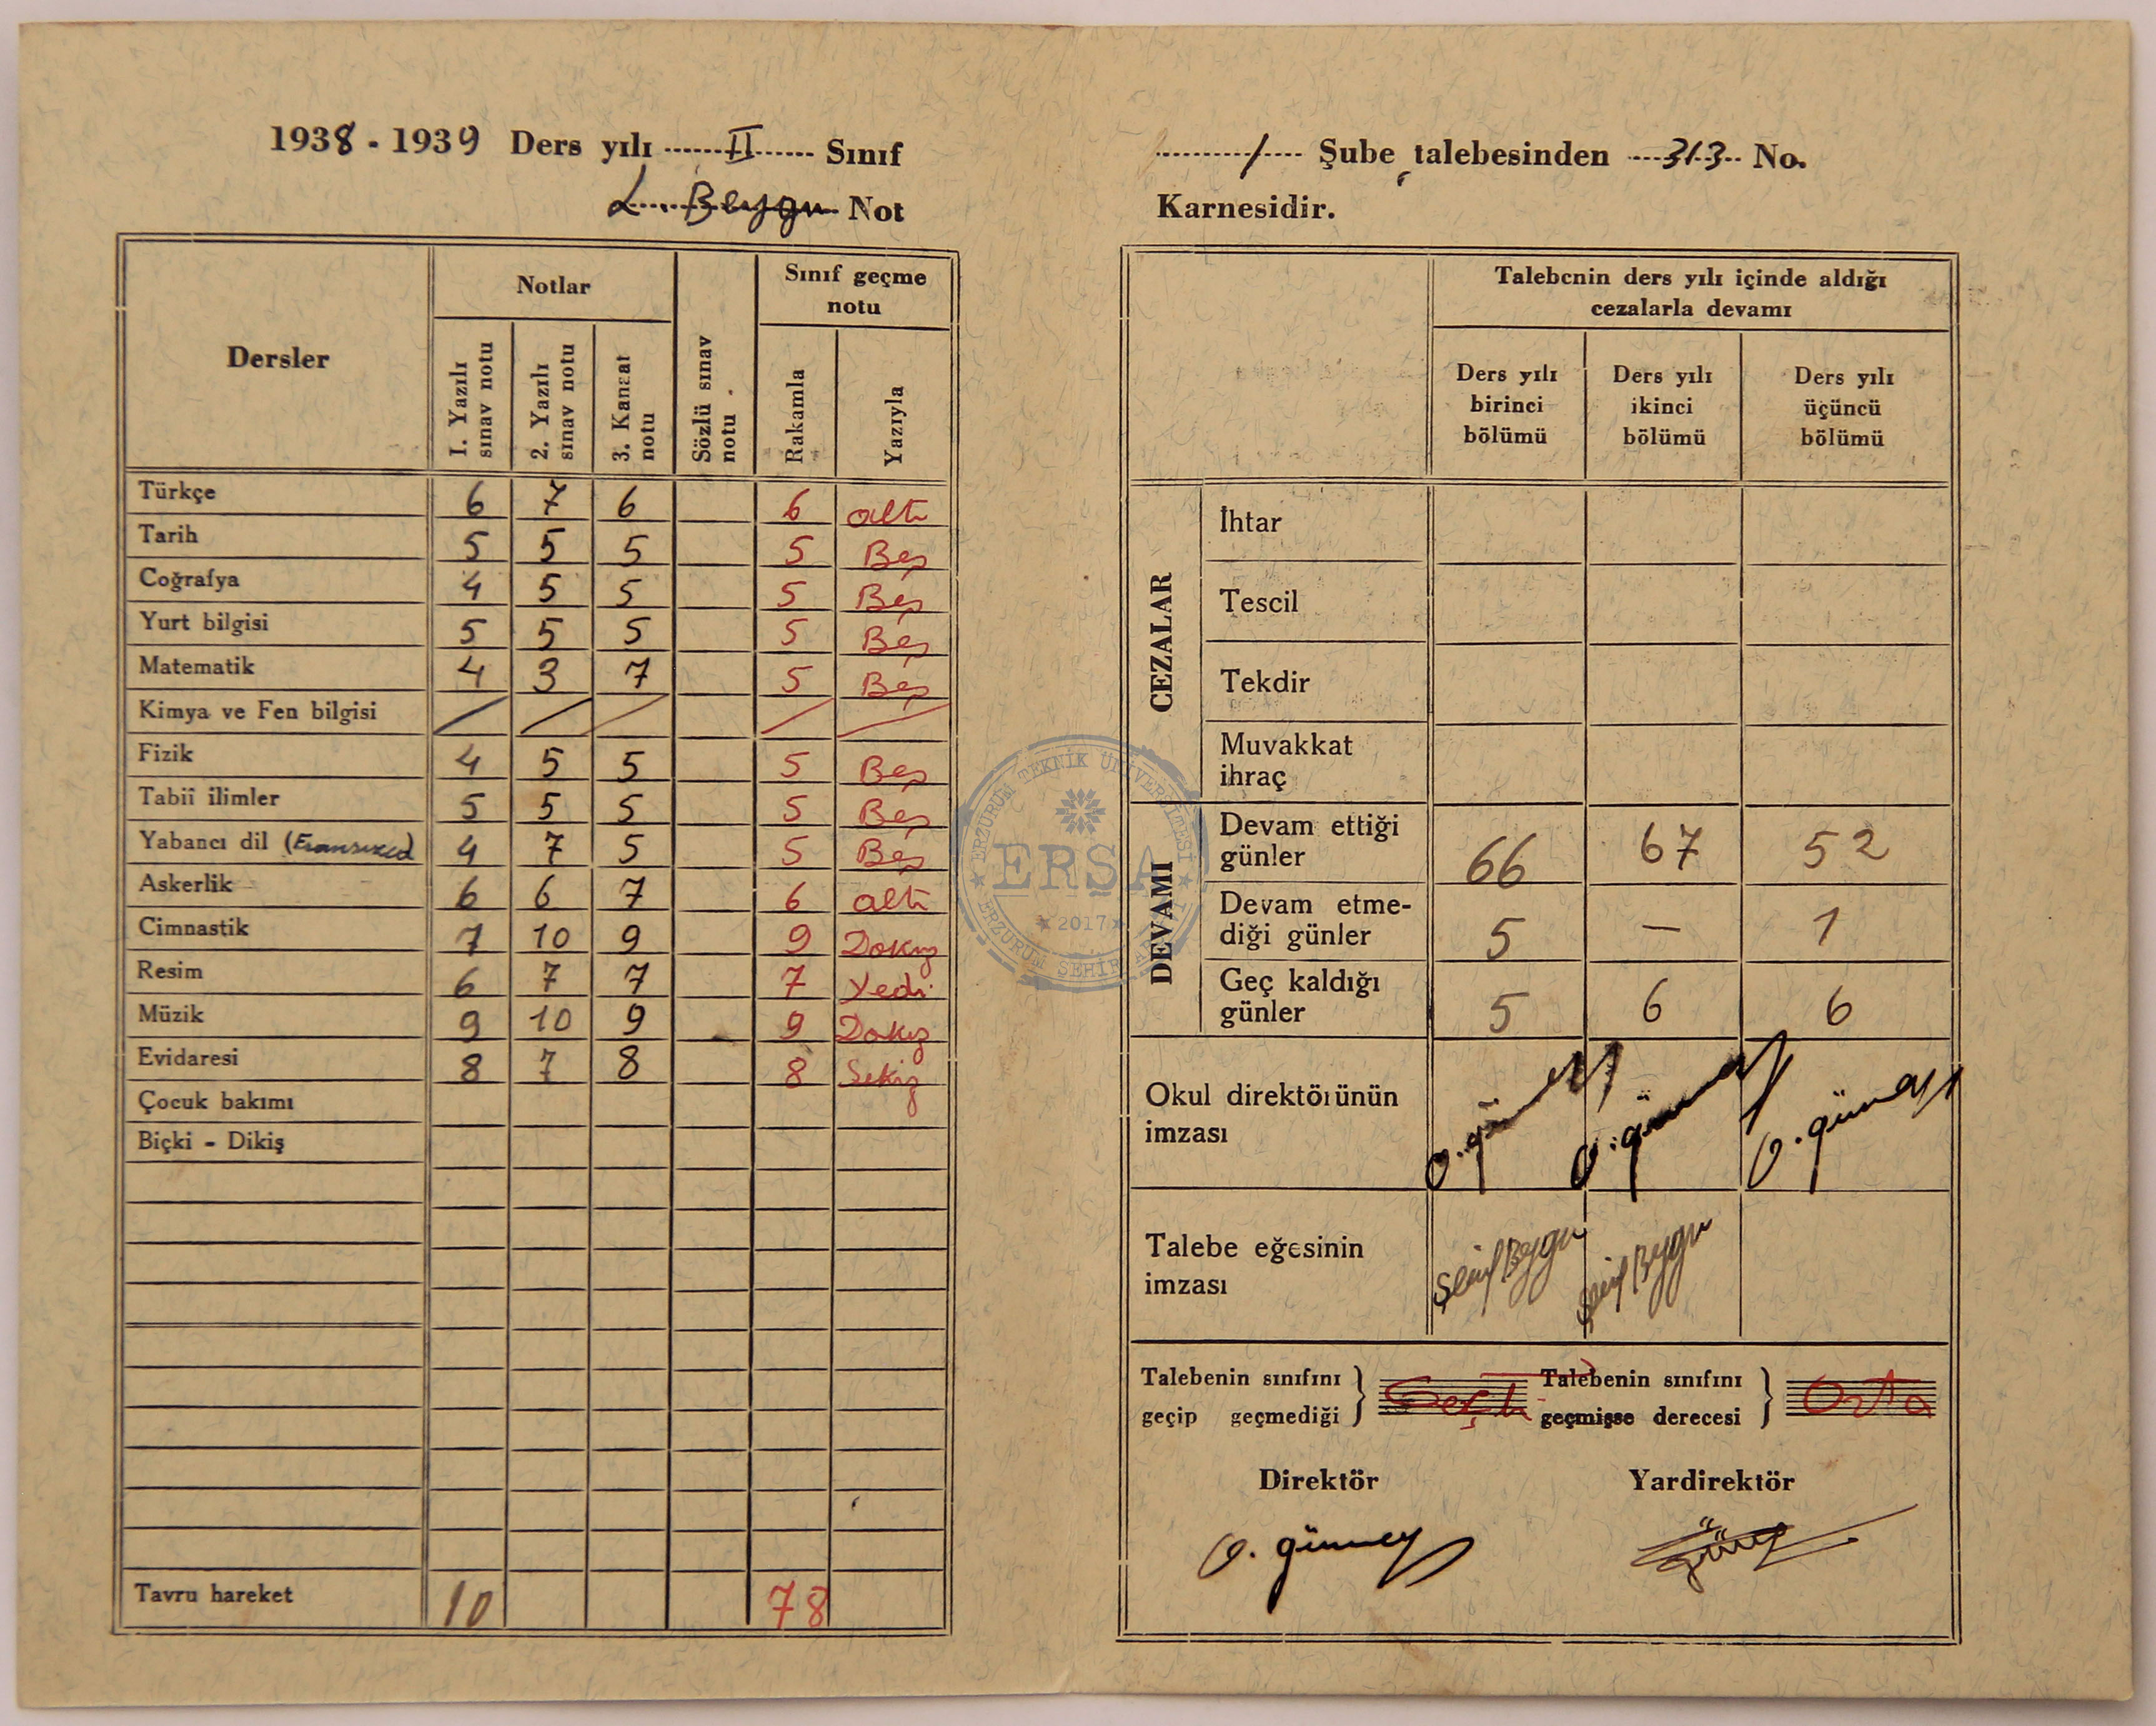 1938 - 1939 Ders yılı II Sınıf
L. Beygu Not
Dersler
Notlar
Sınıf geçme
notu
1. Yazılı
sınav notu
2. Yazılı
sınav notu
3. Kanaat
notu
Sözlü sınav
notu
Rakamla
Yazıyla
Türkçe 6 7 6 6 altı
Tarih 5 5 5 5 Beş
Coğrafya 4 5 5 5 Beş
Yurt bilgisi 5 5 5 5 Beş
Matematik 4 3 7 5 Beş
Kimya ve Fen bilgisi
Fizik 4 5 5 5 Beş
Tabiî ilimler 5 5 5 5 Beş
Yabancı dil (Fransızca) 4 7 5 5 Beş
Askerlik 6 6 7 6 altı
Cimnastik 7 10 9 9 Dokuz
Resim 6 7 7 7 Yedi
Müzik 9 10 9 9 Dokuz
Evidaresi 8 7 8 8 Sekiz
Çocuk bakımı
Biçki - Dikiş
Tavru hareket 10 78
1 Şube talebesinden 313 No.
Karnesidir.
Talebenin ders yılı içinde aldığı
cezalarla devamı
Ders yılı
birinci
bölümü
Ders yılı
ikinci
bölümü
Ders yılı
üçüncü
bölümü
CEZALAR
İhtar
Tescil
Tekdir
Muvakkat
ihraç
DEVAMI
Devam ettiği
günler 66 67 52
Devam etme-
diği günler 5 — 1
Geç kaldığı
günler 5 6 6
Okul direktörünün
imzası
O. güney O. güney O. güney
Talebe eğesinin
imzası
Şerif Beygu Şerif Beygu
Talebenin sınıfını
geçip geçmediği } Geçti
Talebenin sınıfını
geçmişse derecesi } Orta
Direktör Yardirektör
O. güney
ERZURUM TEKNİK ÜNİVERSİTESİ
ERŞA
2017
ERZURUM ŞEHİR ARŞİVİ